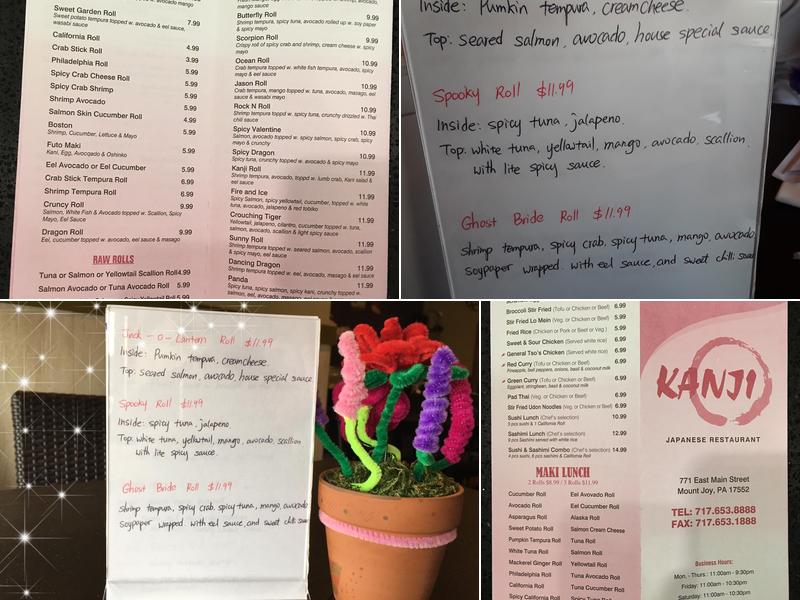 Sweet Garden Roll 7.99
Sweet potato tempura topped w avocado & eel sauce,
wasabi sauce
California Roll 4.99
Crab Stick Roll 3.99
Philadelphia Roll 5.99
Spicy Crab Cheese Roll 5.99
Spicy Crab Shrimp 5.99
Shrimp Avocado 5.99
Salmon Skin Cucumber Roll 4.99
Boston 5.99
Shrimp, Cucumber, Lettuce & Mayo
Futo Maki 5.99
Kani, Egg, Avocado & Oshinko
Eel Avocado or Eel Cucumber 5.99
Crab Stick Tempura Roll 6.99
Shrimp Tempura Roll 6.99
Cruncy Roll 9.99
Salmon, White Fish & Avocado topped w. Scallion, Spicy
Mayo, Eel Sauce
Dragon Roll 9.99
Eel, cucumber topped w. avocado, eel sauce & masago
RAW ROLLS
Tuna or Salmon or Yellowtail Scallion Roll 4.99
Salmon Avocado or Tuna Avocado Roll 5.99
Butterfly Roll 9.99
Shrimp tempura, spicy tuna, avocado rolled up w. soy paper
& spicy mayo
Scorpion Roll 9.99
Crispy roll of spicy crab and shrimp, cream cheese w. spicy
mayo
Ocean Roll 10.99
Crab tempura topped w. white fish tempura, avocado, spicy
mayo & eel sauce
Jason Roll 10.99
Crab tempura, mango topped w. tuna, avocado, masago, eel
sauce & wasabi mayo
Rock N Roll 10.99
Shrimp tempura topped w. spicy tuna, crunchy drizzled w. Thai
chili sauce
Spicy Valentine 10.99
Salmon, avocado topped w. spicy salmon, spicy crab, spicy
mayo & crunchy
Spicy Dragon 10.99
Spicy tuna, crunchy topped w. avocado & spicy mayo
Kanji Roll 11.99
Shrimp tempura, avocado, topped w. lumb crab, Kani salad &
eel sauce
Fire and Ice 11.99
Spicy Salmon, spicy yellowtail, cucumber, topped w. white
tuna, avocado, jalapeño & red tobiko
Crouching Tiger 11.99
Yellowtail, jalapeno, cilantro, cucumber topped w. tuna,
salmon, avocado, scallion & light spicy sauce
Sunny Roll 11.99
Shrimp tempura topped w. seared salmon, avocado, scallion
& spicy mayo, eel sauce
Dancing Dragon 11.99
Shrimp tempura topped w. eel, avocado, masago & eel sauce
Panda 11.99
Spicy tuna, spicy salmon, spicy kani, crunchy topped w.
Inside: Pumkin tempura, creamcheese.
Top: seared salmon, avocado, house special sauce.
Spooky Roll $11.99
Inside: spicy tuna, jalapeno.
Top: white tuna, yellowtail, mango, avocado, scallion.
with lite spicy sauce.
Ghost Bride Roll $11.99
shrimp tempura, spicy crab, spicy tuna, mango, avocado
soypaper wrapped. with eel sauce, and sweet chili
Jack-o-Lantern Roll $11.99
Inside: Pumkin tempura, creamcheese.
Top: seared salmon, avocado, house special sauce
Spooky Roll $11.99
Inside: spicy tuna, jalapeno.
Top: white tuna, yellowtail, mango, avocado, scallion
with lite spicy sauce.
Ghost Bride Roll $11.99
shrimp tempura, spicy crab, spicy tuna, mango, avocado
soypaper wrapped. with eel sauce, and sweet chili
Broccoli Stir Fried (Tofu or Chicken or Beef) 6.99
Stir Fried Lo Mein (Veg. or Chicken or Beef) 6.99
Fried Rice (Chicken or Pork or Beef or Veg.) 5.99
Sweet & Sour Chicken (Served white rice) 6.99
General Tso's Chicken (Served white rice) 6.99
Red Curry (Tofu or Chicken or Beef) 6.99
Pineapple, bell peppers, onions, basil & coconut milk
Green Curry (Tofu or Chicken or Beef) 6.99
Eggplant, stringbean, basil & coconut milk
Pad Thai (Veg. or Chicken or Beef) 6.99
Stir Fried Udon Noodles (Veg. or Chicken or Beef) 6.99
Sushi Lunch (Chef's selection) 10.99
5 pcs sushi & 1 California Roll
Sashimi Lunch (Chef's selection) 12.99
9 pcs Sashimi served with white rice
Sushi & Sashimi Combo (Chef's selection) 14.99
4 pcs sushi, 6 pcs sashimi & California Roll
MAKI LUNCH
2 Rolls $8.99 / 3 Rolls $11.99
Cucumber Roll
Avocado Roll
Asparagus Roll
Sweet Potato Roll
Pumpkin Tempura Roll
White Tuna Roll
Mackerel Ginger Roll
Philadelphia Roll
California Roll
Spicy California Roll
Eel Avovado Roll
Eel Cucumber Roll
Alaska Roll
Salmon Cream Cheese
Tuna Roll
Salmon Roll
Yellowtail Roll
Tuna Avocado Roll
Tuna Cucumber Roll
Spicy Tuna Roll
KANJI
JAPANESE RESTAURANT
771 East Main Street
Mount Joy, PA 17552
TEL: 717.653.8888
FAX: 717.653.1888
Business Hours:
Mon. - Thurs.: 11:00am - 9:30pm
Friday: 11:00am - 10:30pm
Saturday: 11:00am - 10:30pm